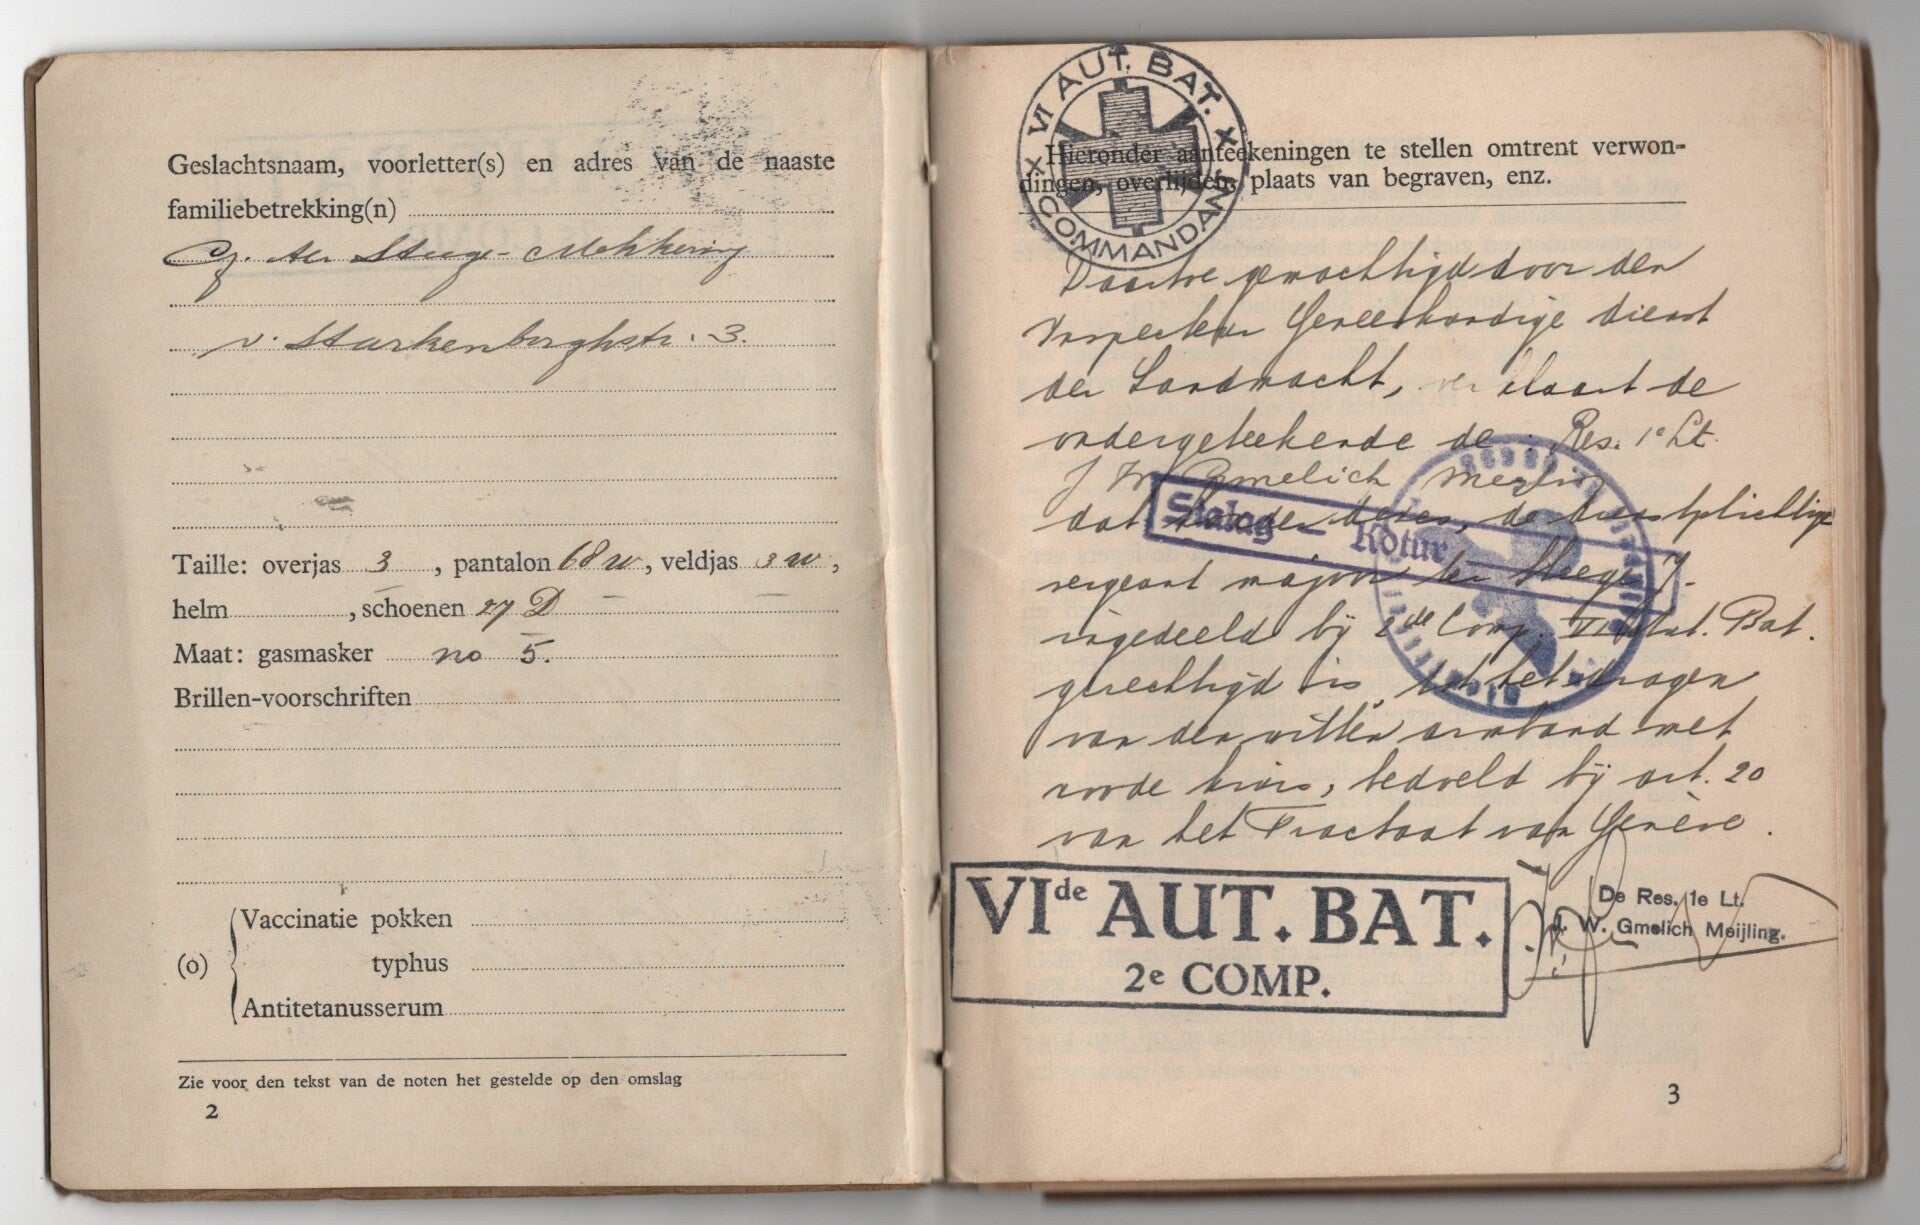 Geslachtsnaam, voorletter(s) en adres van de naaste
familiebetrekking(n)
ter Steege - Mekkering
v. Starkenborghstr. 3.
Taille: overjas 3, pantalon 68 w, veldjas 3 w,
helm, schoenen 27 D
Maat: gasmasker no 5.
Brillen-voorschriften
(o)
Vaccinatie pokken
typhus
Antitetanusserum
Zie voor den tekst van de noten het gestelde op den omslag
2
X VI AUT. BAT. X
COMMANDANT
Hieronder aanteekeningen te stellen omtrent verwon-
dingen, overlijden, plaats van begraven, enz.
Daartoe gemachtigd door den
Inspecteur Geneeskundige dienst
der Landmacht, verklaart de
ondergeteekende de Res. 1e Lt.
J W Gmelich Meijling
dat houder dezes, de dienstplichtige
Stalag
sergeant majoor ter Steege J.
ingedeeld bij 2de Comp. VI Aut. Bat.
gerechtigd is tot het dragen
van den witten armband met
roode kruis, bedoeld bij art. 20
van het Tractaat van Genève.
VIde AUT. BAT.
2e COMP.
De Res. 1e Lt.
J. W. Gmelich Meijling.
3